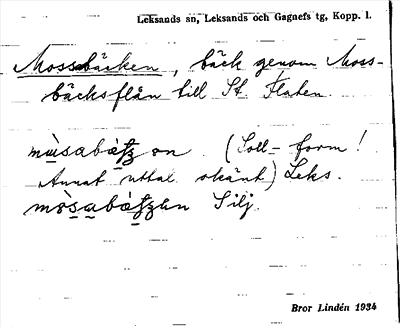 Leksands sn, Leksands och Gagnefs tg, Kopp. l.
Mossbäcken, bäck genom Moss-
bäcksflån till St. Flaten.
(Soll-form!
Annat uttal okänt) Leks.
Silj.
Bror Lindén 1934